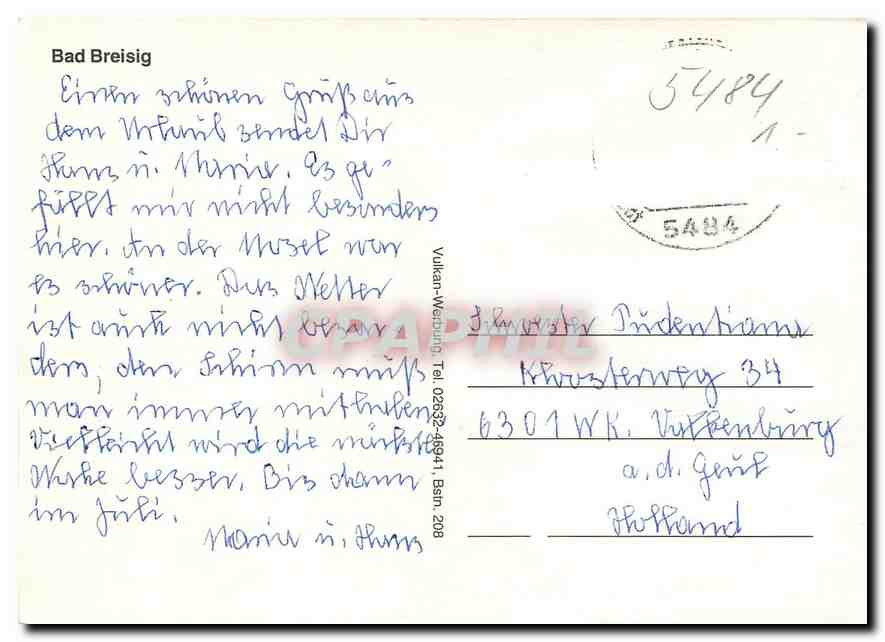 Bad Breisig
Einen schönen Gruß aus
dem Urlaub sendet Dir
Hans u. Maria. Es ge-
fällt mir nicht besonders
hier. An der Mosel war
es schöner. Das Wetter
ist auch nicht beson-
ders, den Schirm muß
man immer mithaben
Vielleicht wird die nächste
Woche besser. Bis dann
im Juli.
Maria u. Hans
Vulkan-Werbung, Tel. 02632-46941, Bstn. 208
5484
1.-
5484
Schwester Pudentiana
Kloosterweg 34
6301WK. Valkenburg
a.d. Geul
Holland
CPAPHIL